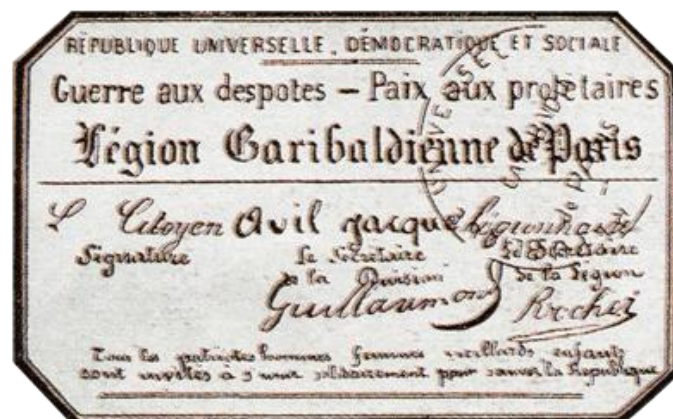 RÉPUBLIQUE UNIVERSELLE, DÉMOCRATIQUE ET SOCIALE
Guerre aux despotes — Paix aux prolétaires
Légion Garibaldienne de Paris
L Citoyen Avil Jacque Légionnaire
Signature Le Secrétaire Le Secrétaire
de la Division de la Légion
Guillaumont Rochei
Tous les patriotes hommes femmes vieillards enfants
sont invités à s'unir solidairement pour sauver la République